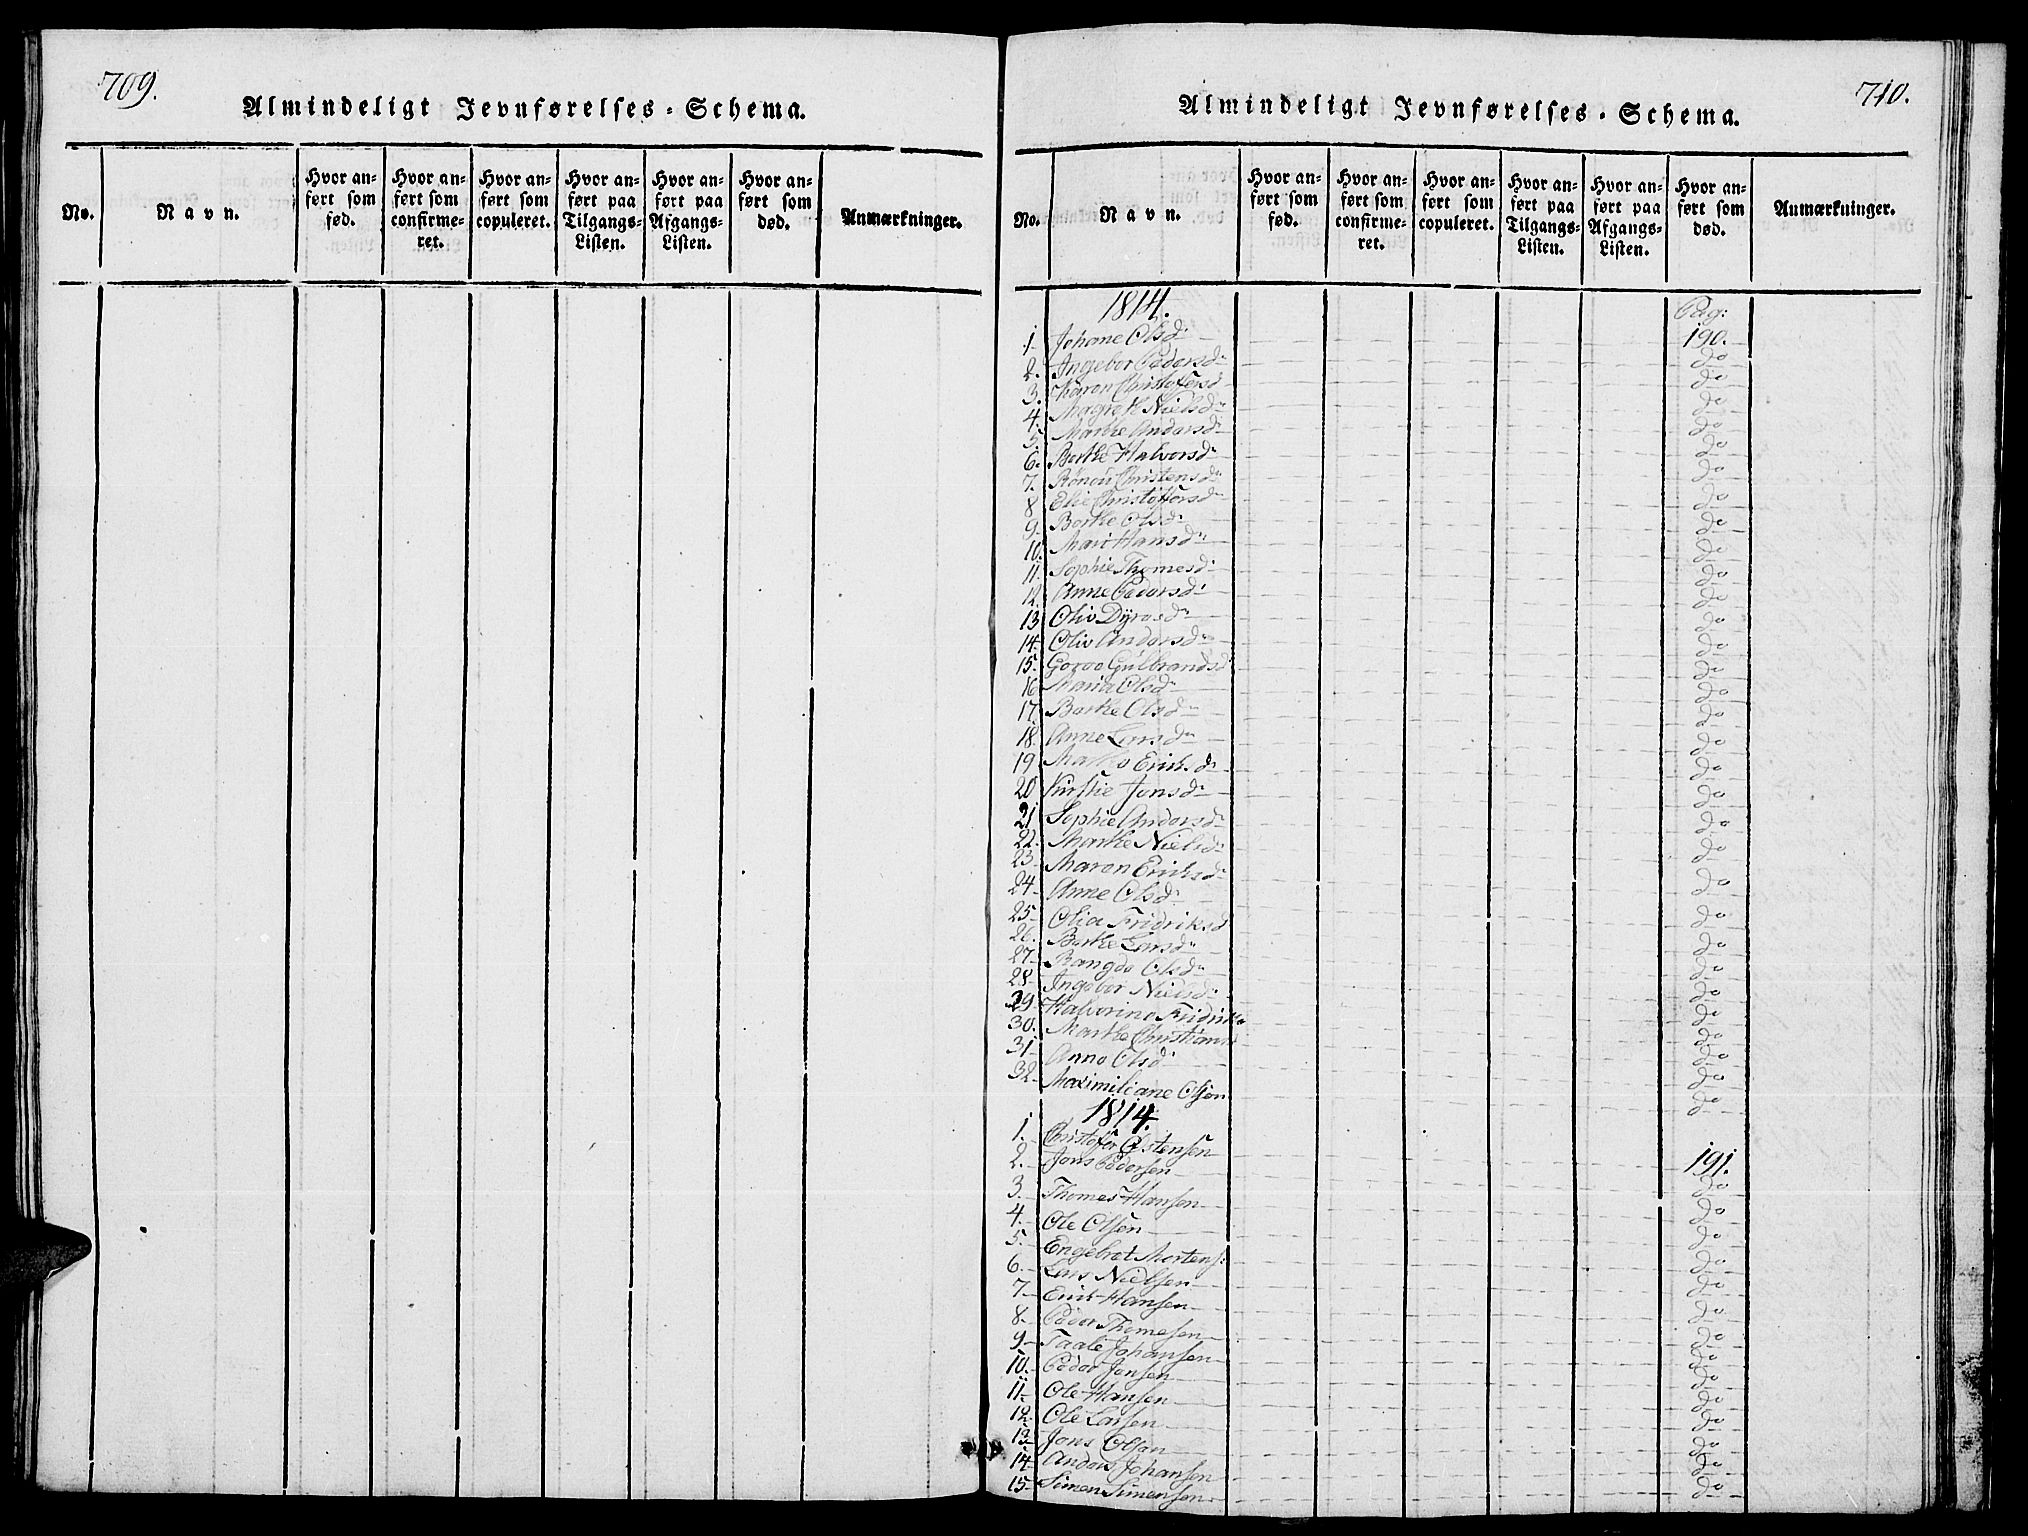 709.
Almindeligt Jevnførelses-Schema.
No.
Navn.
Hvor anført som fød.
Hvor anført som confirmeret.
Hvor anført som copuleret.
Hvor anført paa Tilgangs-Listen.
Hvor anført paa Afgangs-Listen.
Hvor anført som død.
Anmærkninger.
710.
Almindeligt Jevnførelses-Schema.
No.
Navn.
Hvor anført som fød.
Hvor anført som confirmeret.
Hvor anført som copuleret.
Hvor anført paa Tilgangs-Listen.
Hvor anført paa Afgangs-Listen.
Hvor anført som død.
Anmærkninger.
1814. Pag:
1 Johane Olsd: 190.
2. Ingebor Pedersd: do
3. Karen Christofersd do
4. Magreth Nielsd: do
5. Marthe Andersd: do
6. Berthe Halvorsd: do
7. Rønou Christensd: do
8 Elie Christoffersd: do
9. Berthe Olsd: do
10. Mari Hansd: do
11. Sophie Thomesd: do
12. Anne Pedersd: do
13 Oliv Dyresd: do
14. Oliv Andersd: do
15. Goroe Gulbrandsd: do
16 Maria Olsd: do
17. Berthe Olsd: do
18. Anne Larsd: do
19 Marthe Eriksd: do
20 Kirstie Jensd: do
21 Sophie Andersd: do
22. Marthe Nielsd: do
23. Maren Eriksd: do
24. Anne Olsd: do
25. Olia Fridriksd do
26. Berthe Larsd: do
27. Rangde Olsd: do
28. Ingebor Nielsd: do
29. Halvorine Fridriks do
30. Marthe Christians do
31. Anne Olsd: do
32. Maximiliane Olsen do
1814.
1. Christofer Østensen 191.
2. Jens Pedersen do
3. Thomes Hansen do
4. Ole Olsen do
5. Engebret Mortens: do
6. Lars Nielsen do
7 Erik Hansen do
8. Peder Thomesen do
9 Taale Johansen do
10. Peder Jensen do
11. Ole Hansen do
12. Ole Larsen do
13 Jens Olsen do
14 Anders Johansen do
15 Simen Simensen do